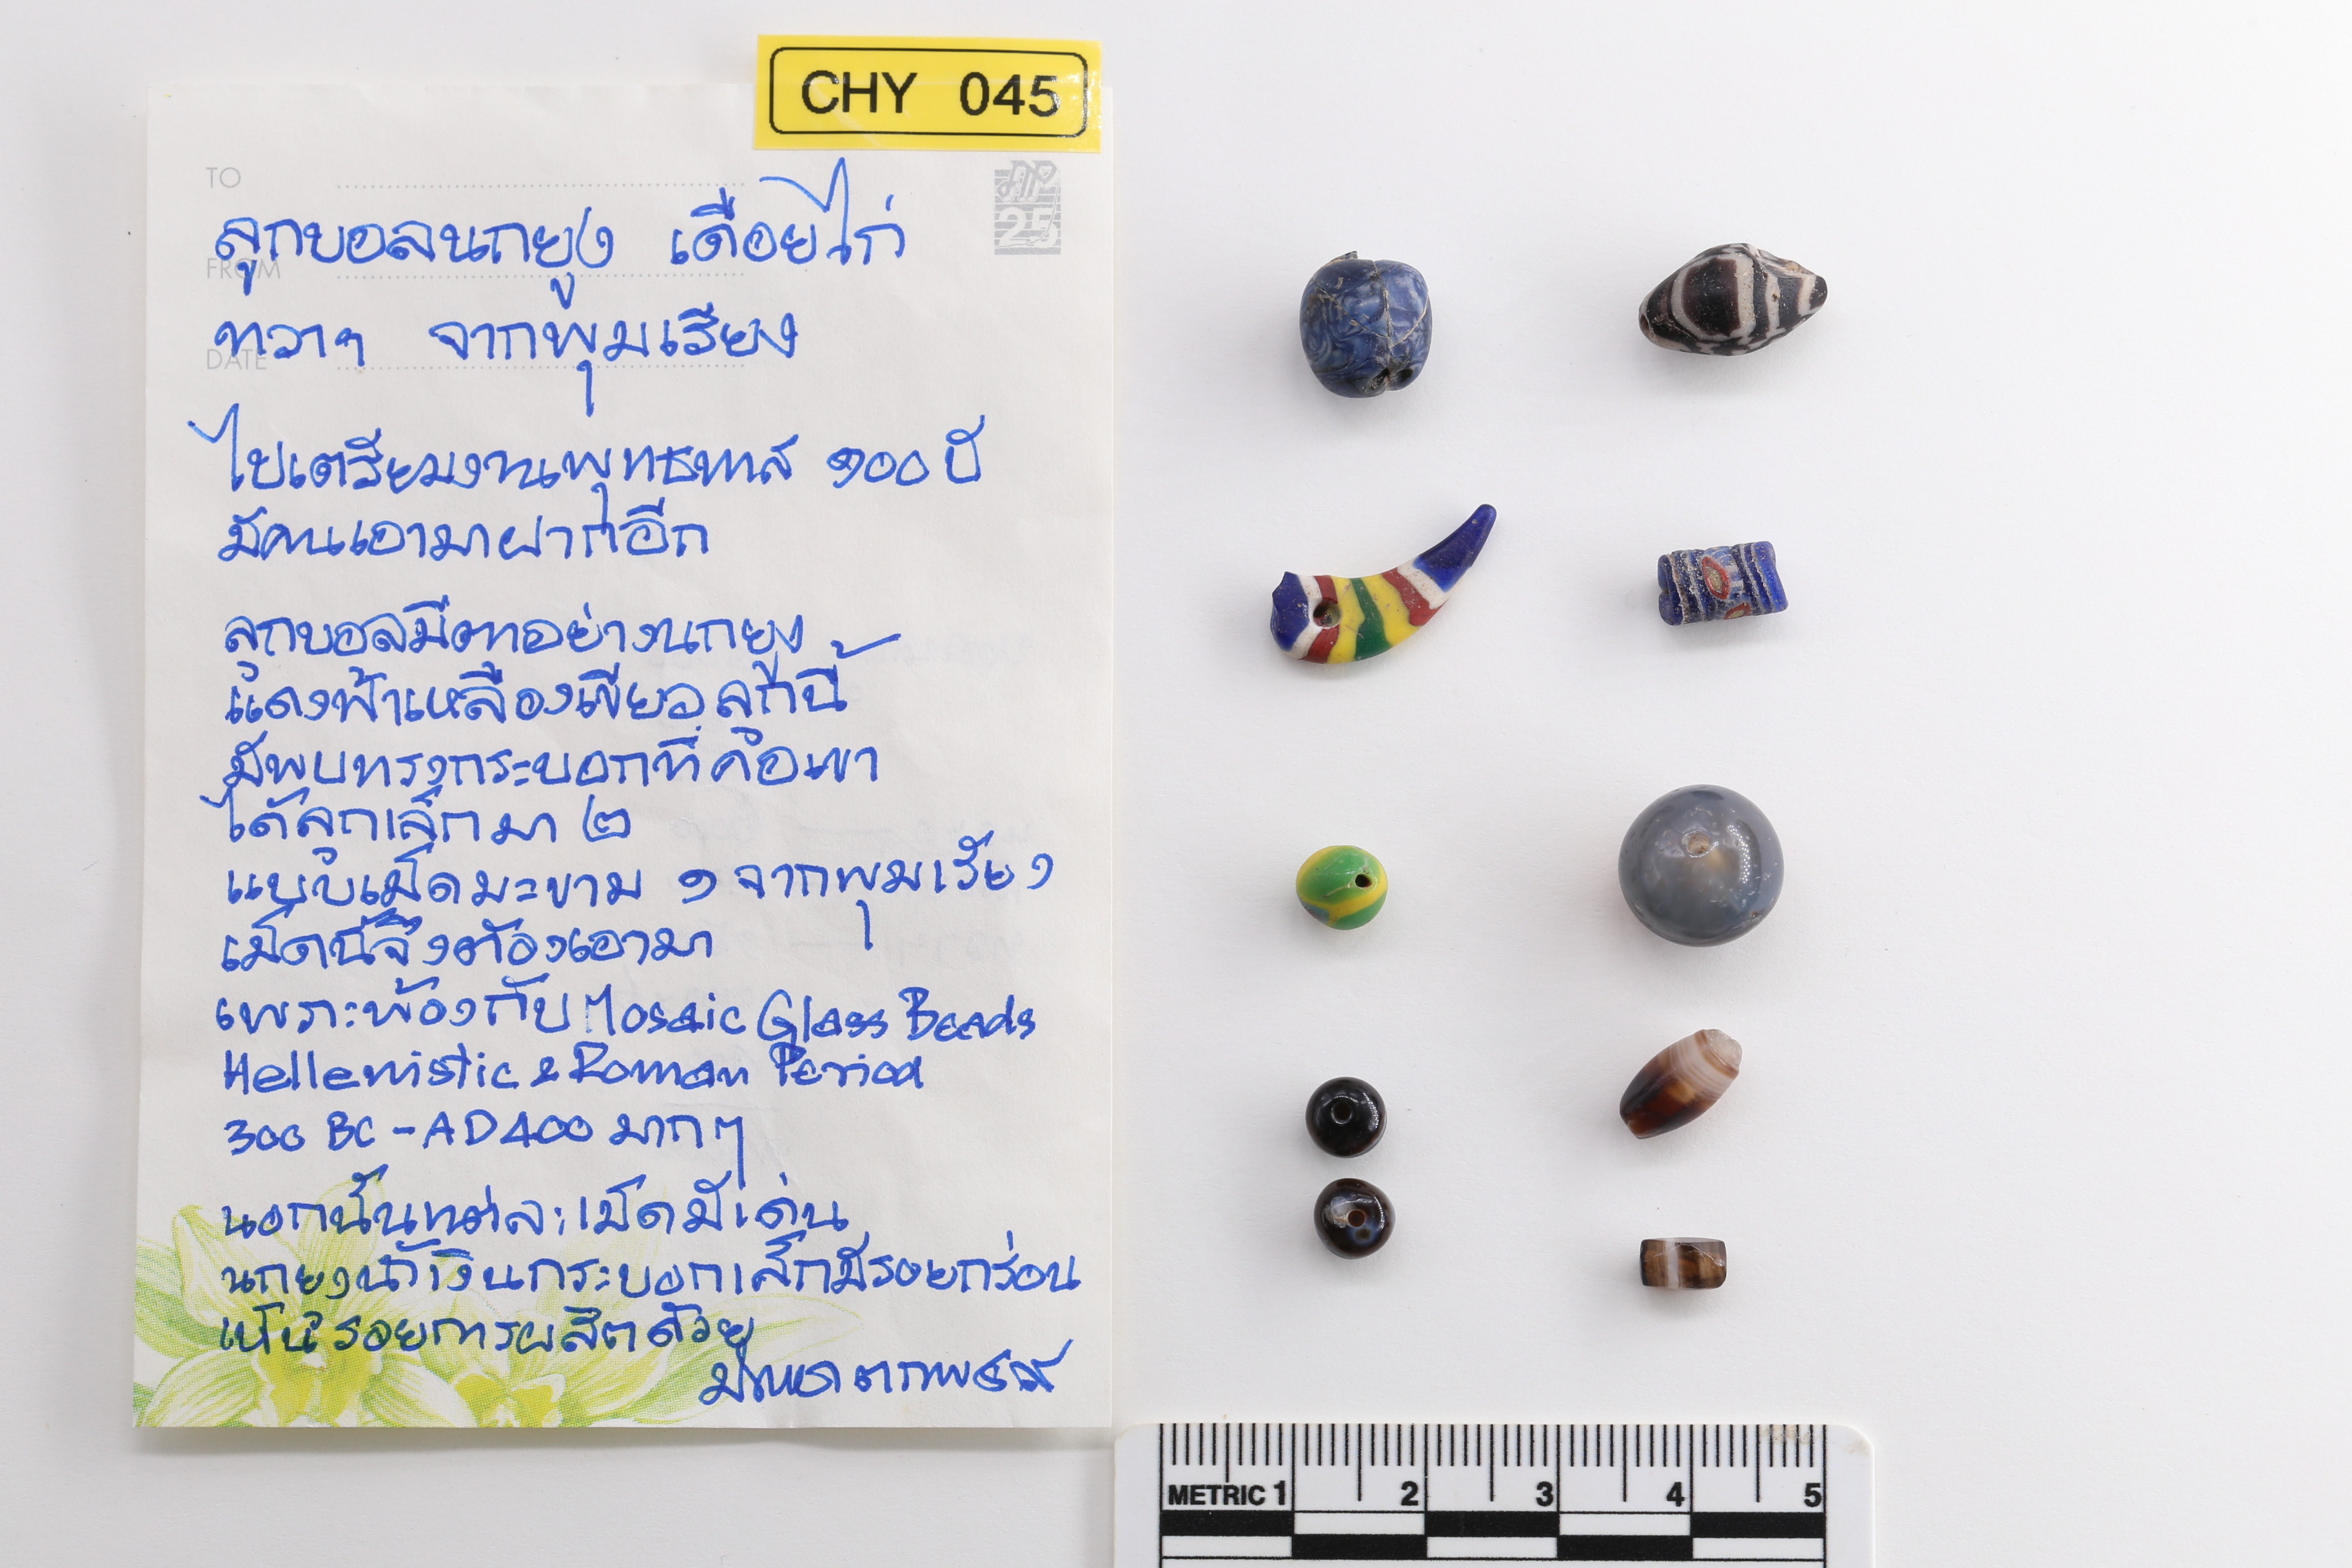 CHY 045
TO
ลูกบอลนกยูง เดือยไก่
FROM
ทวาฯ จากพุมเรียง
DATE
ไปเตรียมงานพุทธทาส ๑๐๐ ปี
มีคนเอามาฝากอีก
ลูกบอลมีตาอย่างนกยูง
แดงฟ้าเหลืองเขียว ลูกนี้
มีพบทรงกระบอกที่
ได้ลูกเล็กมา ๒
แบบเม็ดมะขาม ๑ จากพุมเรียง
เม็ดนี้จึงต้องเอามา
เพราะพ้องกับ Mosaic Glass Beads
Hellenistic & Roman Period
300 BC - AD 400 มากๆ
นอกนั้นแต่ละเม็ดมีเด่น
นกยูงน้ำเงินกระบอกเล็กมีรอยกร่อน
เห็นรอยการผลิตด้วย
25
METRIC 1 2 3 4 5